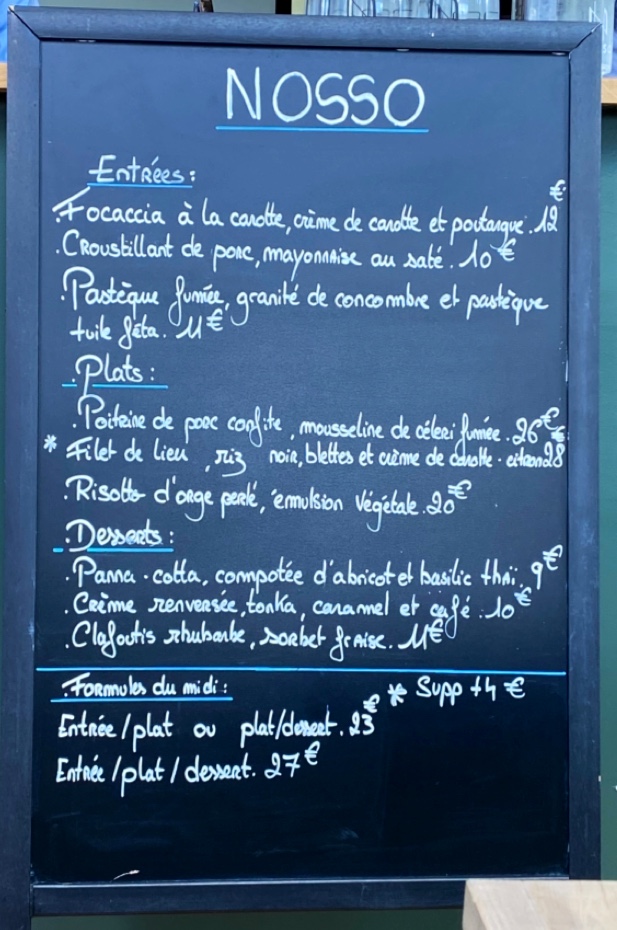 NOSSO
Entrées :
. Focaccia à la carotte, crème de carotte et poutargue . 12 €
. Croustillant de porc, mayonnaise au saté . 10 €
. Pastèque fumée, granité de concombre et pastèque
tuile féta . 11 €
. Plats :
. Poitrine de porc confite, mousseline de céleri fumée . 26 €
* Filet de lieu, riz noir, blettes et crème de carotte - citron 28 €
. Risotto d'orge perlé, émulsion végétale . 20 €
. Desserts :
. Panna-cotta, compotée d'abricot et basilic thaï . 9 €
. Crème renversée, tonka, caramel et café . 10 €
. Clafoutis rhubarbe, sorbet fraise . 11 €
. Formules du midi :
* Supp +4 €
Entrée / plat ou plat/dessert . 23 €
Entrée / plat / dessert . 27 €